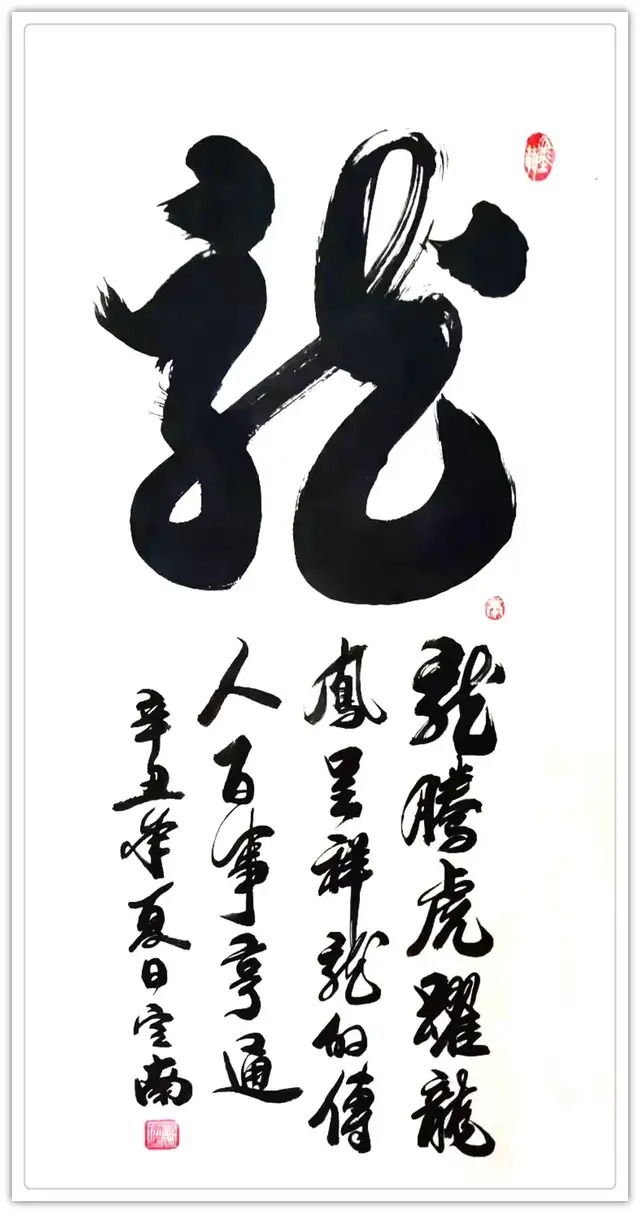 龍
龍騰虎躍龍
鳳呈祥龍的傳
人百事亨通
辛丑年夏日定南